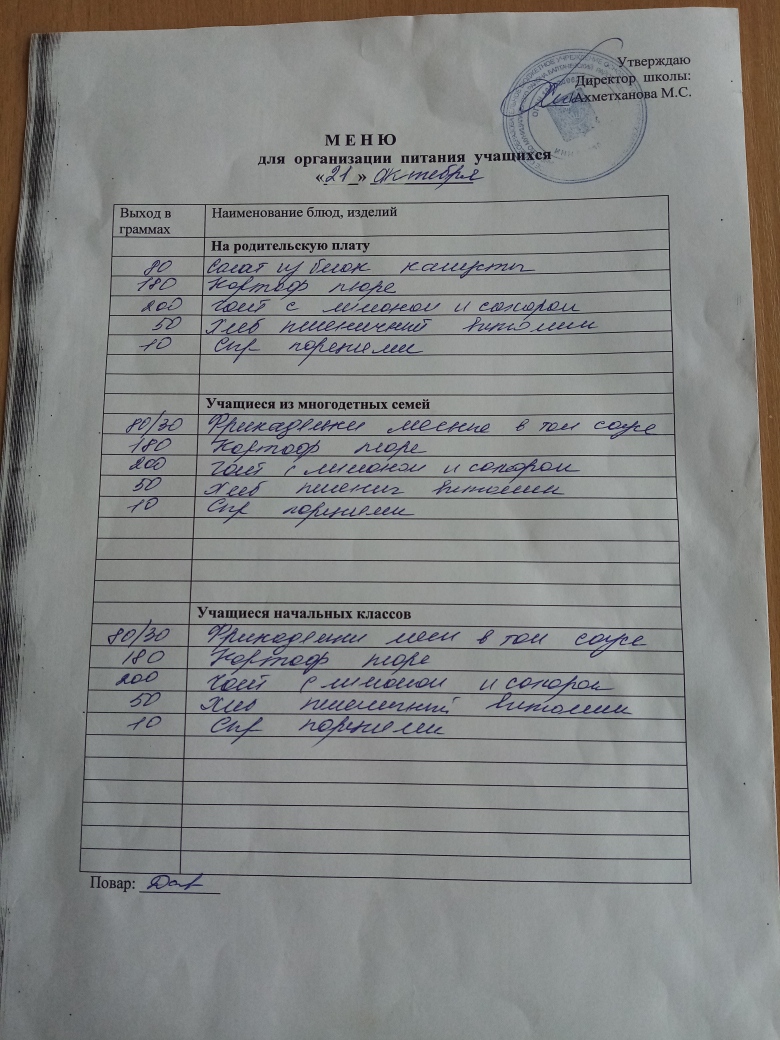 Утверждаю
Директор школы:
Ахметханова М.С.
М Е Н Ю
для организации питания учащихся
«21_» октября
Выход в граммах Наименование блюд, изделий
На родительскую плату
80 Салат из белок капусты
180 Картоф пюре
200 Чай с лимоном и сахаром
50 Хлеб пшеничный витамин
10 Сыр порциями
Учащиеся из многодетных семей
80/30 Фрикадельки мясные в том соусе
180 Картоф пюре
200 Чай с лимоном и сахаром
50 Хлеб пшенич витамин
10 Сыр порциями
Учащиеся начальных классов
80/30 Фрикадельки мясн в том соусе
180 Картоф пюре
200 Чай с лимоном и сахаром
50 Хлеб пшеничный витамин
10 Сыр порциями
Повар: